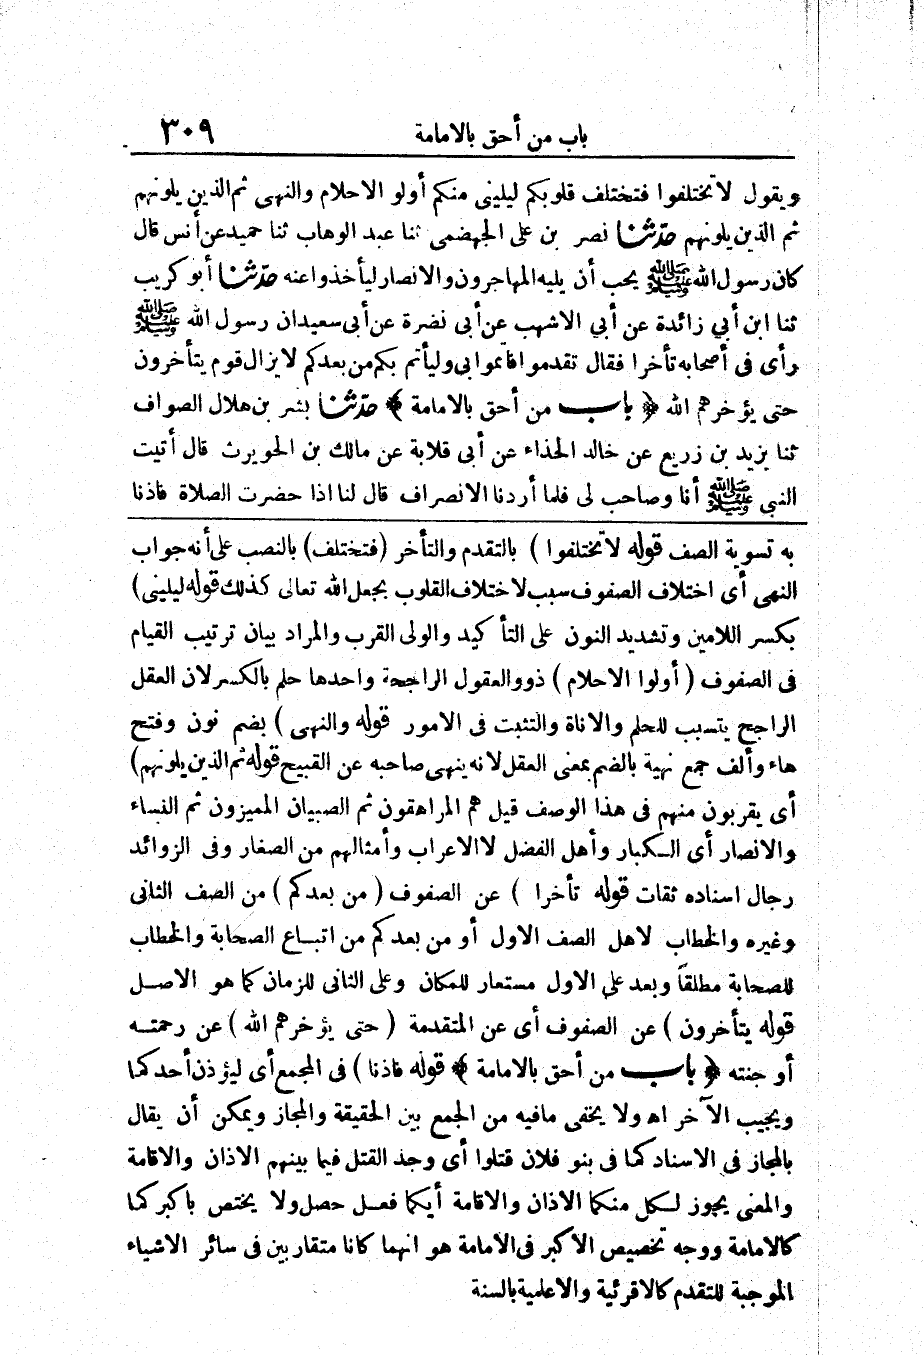 باب من أحق بالامامة ٣٠٩
ويقول لا تختلفوا فتختلف قلوبكم ليليني منكم أولو الاحلام والنهى ثم الذين يلونهم
ثم الذين يلونهم حدثنا نصر بن على الجهضمى ثنا عبد الوهاب ثنا حميد عن أنس قال
كان رسول الله ﷺ يحب أن يليه المهاجرون والانصار ليأخذوا عنه حدثنا أبو كريب
ثنا ابن أبي زائدة عن أبي الاشهب عن أبى نضرة عن أبى سعيد ان رسول الله ﷺ
رأى فى أصحابه تأخرا فقال تقدموا فائتموا بى وليأتم بكم من بعدكم لا يزال قوم يتأخرون
حتى يؤخرهم الله ﴿ باب من أحق بالامامة ﴾ حدثنا بشر بن هلال الصواف
ثنا يزيد بن زريع عن خالد الحذاء عن أبى قلابة عن مالك بن الحويرث قال أتيت
النبي ﷺ أنا وصاحب لى فلما أردنا الانصراف قال لنا اذا حضرت الصلاة فاذنا
به تسوية الصف قوله لا تختلفوا ) بالتقدم والتأخر (فتختلف) بالنصب على أنه جواب
النهى أى اختلاف الصفوف سبب لاختلاف القلوب بجعل الله تعالى كذلك قوله ليليني)
بكسر اللامين وتشديد النون على التأ كيد والولى القرب والمراد بيان ترتيب القيام
فى الصفوف ( أولوا الاحلام ) ذوو العقول الراجحة واحدها حلم بالكسر لان العقل
الراجح يتسبب للحلم والاناة والتثبت فى الامور قوله والنهى ) بضم نون وفتح
هاء وألف جمع نهية بالضم بمعنى العقل لانه ينهى صاحبه عن القبيح قوله ثم الذين يلونهم)
أى يقربون منهم فى هذا الوصف قيل هم المراهقون ثم الصبيان المميزون ثم النساء
والانصار أى الكبار وأهل الفضل لا الاعراب وأمثالهم من الصغار وفى الزوائد
رجال اسناده ثقات قوله تأخرا ) عن الصفوف ( من بعدكم ) من الصف الثانى
وغيره والخطاب لاهل الصف الاول أو من بعدكم من اتباع الصحابة والخطاب
للصحابة مطلقاً وبعد على الاول مستعار للمكان وعلى الثانى للزمان كما هو الاصل
قوله يتأخرون ) عن الصفوف أى عن المتقدمة ( حتى يؤخرهم الله ) عن رحمته
أو جنته ﴿ باب من أحق بالامامة ﴾ قوله فاذنا ) فى المجمع أى ليؤذن أحدكما
ويجيب الآخر اه ولا يخفى مافيه من الجمع بين الحقيقة والمجاز ويمكن أن يقال
بالمجاز فى الاسناد كما فى بنو فلان قتلوا أى وجد القتل فيما بينهم الاذان والاقامة
والمعنى يجوز لكل منكما الاذان والاقامة أيكما فعل حصل ولا يختص باكبركما
كالامامة ووجه تخصيص الاكبر فى الامامة هو انهما كانا متقاربين فى سائر الاشياء
الموجبة للتقدم كالاقرئية والاعلمية بالسنة